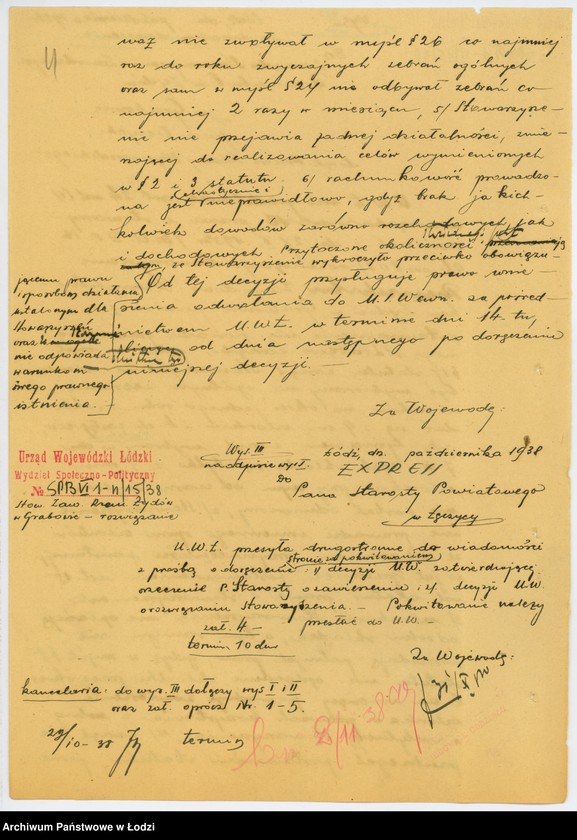 4
waż nie zwoływał w myśl § 26 co najmniej
raz do roku zwyczajnych zebrań ogólnych
oraz sam w myśl § 24 nie odbywał zebrań co
najmniej 2 razy w miesiącu, 5/ Stowarzysze-
nie nie przejawia żadnej działalności, zmie-
rzającej do realizowania celów wymienionych
w § 2 i 3 statutu. 6/ rachunkowość prowadzo-
na jest nieprawidłowo, gdyż brak jakich-
kolwiek dowodów zarówno rozchodowych, jak
i dochodowych. Przytoczone okoliczności
że Stowarzyszenie wykroczyło przeciwko obowiązu-
jącemu prawu
i sposobom działania
ustalonym dla
stowarzyszeń
oraz
nie odpowiada
warunkom
swego prawnego
istnienia. —
Od tej decyzji przysługuje prawo wnie-
sienia odwołania do M.S.Wewn. za pośred-
nictwem U.W.Ł. w terminie dni 14-tu,
licząc od dnia następnego po doręczeniu
niniejszej decyzji. —
Za Wojewodę:
Urząd Wojewódzki Łódzki
Wydział Społeczno-Polityczny
№ SPB VI 1-n/15/38
Stow. Zaw. Rzem. Żydów
w Grabowie – rozwiązanie
Wyś. III
na odpisie wyś. I.
Łódź, dn. października 1938
EXPRESS
Do
Pana Starosty Powiatowego
w Łęczycy
U.W.Ł. przesyła drugostronne do wiadomości
z prośbą o doręczenie stronie za pokwitowaniem: 1/ decyzji U.W. zatwierdzającej
orzeczenie P. Starosty o zawieszeniu i 2/ decyzji U.W.
o rozwiązaniu Stowarzyszenia. — Pokwitowane należy
przesłać do U.W. —
zał. 4 —
termin 10 dni
Za Wojewodę:
kancelaria: do wys. III dołączy wys I i II
oraz zał. oprócz Nr. 1-5.
28/10-38
termin
28/11 38
Archiwum Państwowe w Łodzi